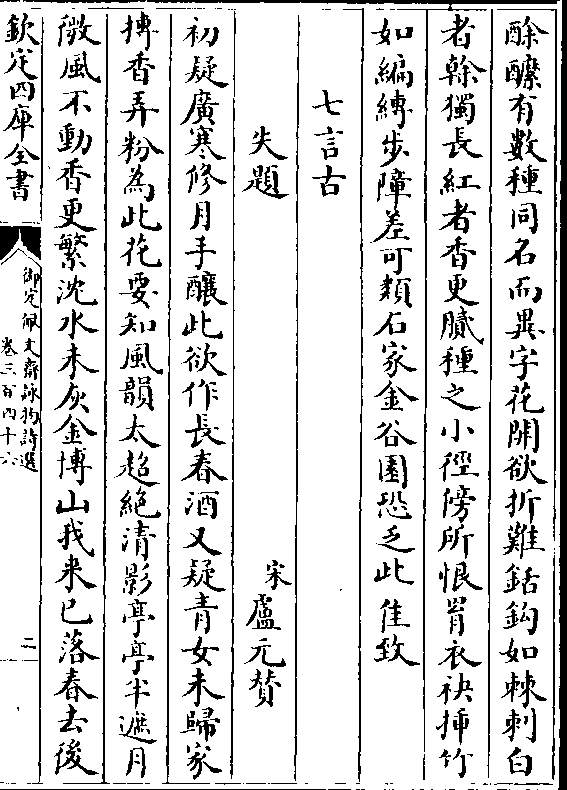 酴醾有數種同名而異字花開欲折難銛鈎如棘刺白
者榦獨長紅者香更膩種之小徑傍所恨罥衣袂揷竹
如編縛步障差可類石家金谷園恐乏此佳致
七言古
失題
宋盧元贊
初疑廣寒修月手釀此欲作長春酒又疑青女未歸家
摶香弄粉為此花要知風韻太超絶清影亭亭半遮月
微風不動香更繁沈水未灰金博山我来已落春去後
欽定四庫全書
御定佩文齋詠物詩選
卷三百四十六
二